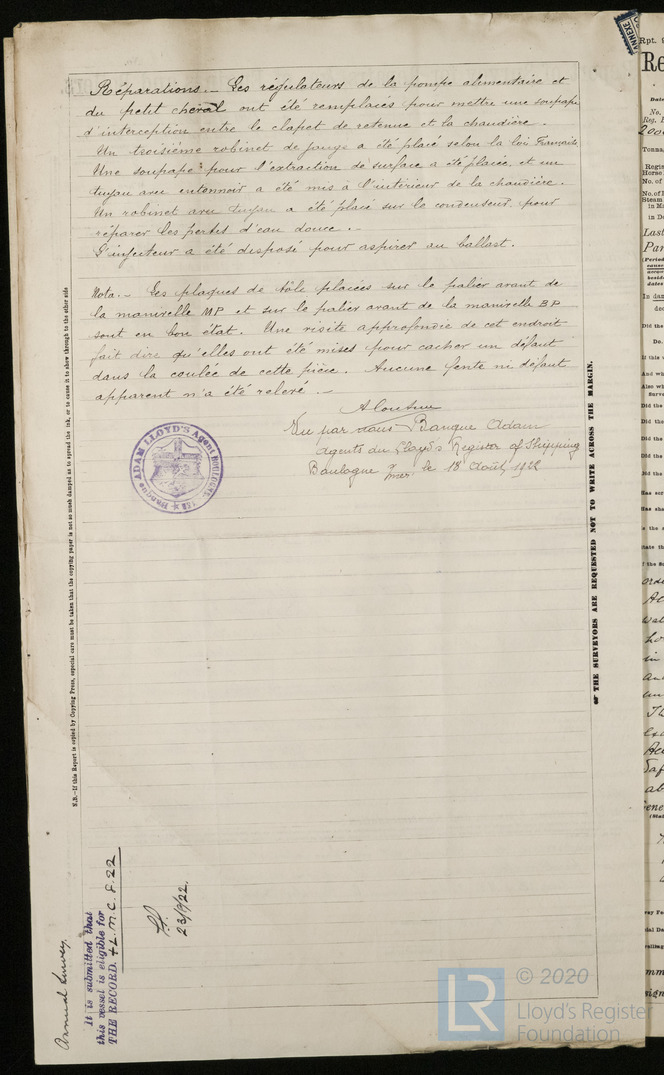 Réparations.- Les régulateurs de la pompe alimentaire et
du petit cheval ont été remplacés pour mettre une soupape
d'interception entre le clapet de retenue et la chaudière.
Un troisième robinet de jauge a été placé selon la loi Française
Une soupape pour l'extraction de surface a été placée, et un
tuyau avec entonnoir a été mis à l'intérieur de la chaudière.
Un robinet avec tuyau a été placé sur le condenseur pour
réparer les pertes d'eau douce.-
L'injecteur a été disposé pour aspirer au ballast.
Nota.- Les plaques de tôle placées sur le palier avant de
la manivelle MP et sur le palier avant de la manivelle BP
sont en bon état. Une visite approfondie de cet endroit
fait dire qu'elles ont été mises pour cacher un défaut
dans la coulée de cette pièce. Aucune fente ni défaut
apparent n'a été relevé.-
Vu par nous Banque Adam
Agents du Lloyd's Register of Shipping
Boulogne s/mer le 18 Août 1922
Banque ADAM LLOYD'S Agent BOULOGNE
N.B.-If this Report is copied by Copying Press, especial care must be taken that the copying paper is not so much damped as to spread the ink, or to cause it to show through to the other side
THE SURVEYORS ARE REQUESTED NOT TO WRITE ACROSS THE MARGIN.
Annual Survey.
It is submitted that
this vessel is eligible for
THE RECORD. + L.M.C. 8.22
23/9/22.
ANNEXE
Rpt. 9
Re
LR
© 2020
Lloyd's Register
Foundation